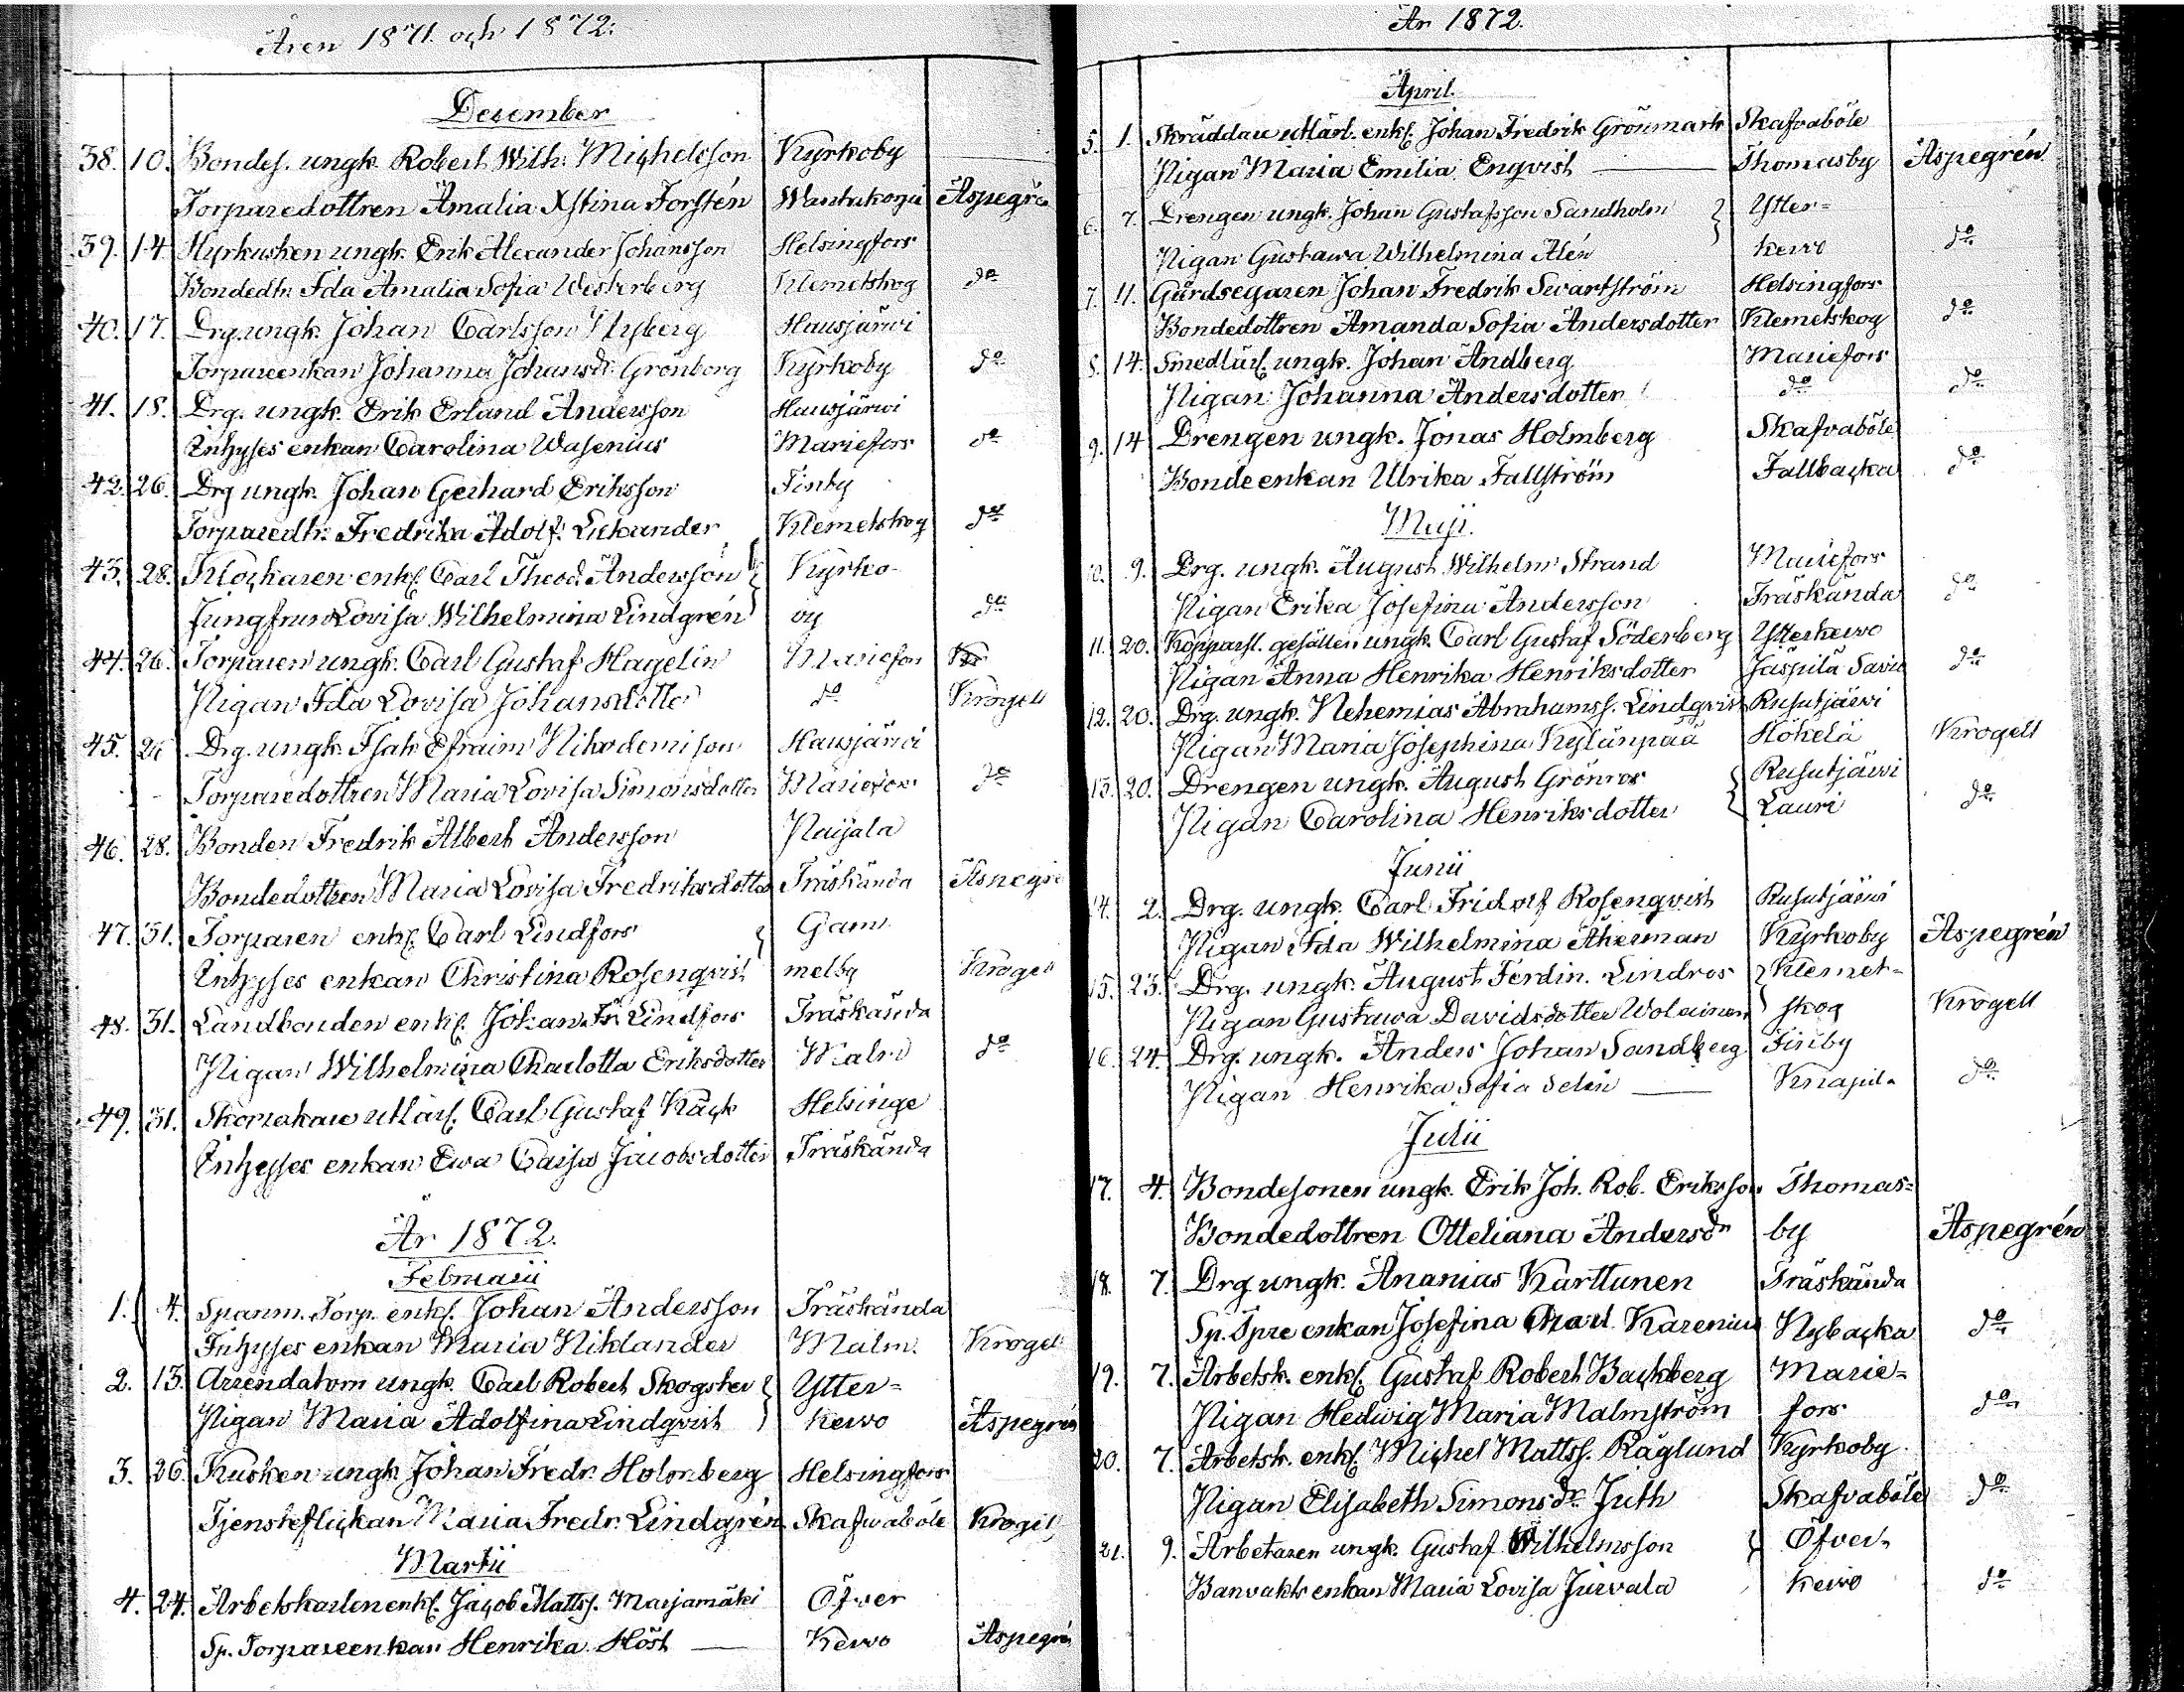 Åren 1871 och 1872:
December
38. 10. Bondes. ungk. Robert Wilh: Michelsson Kyrkoby
Torparedottren Amalia Xstina Forstén Wantakoski Aspegrén
39. 14. Hyrkusken ungk. Erik Alexander Johansson Helsingfors
Bondedtr. Ida Amalia Sofia Westerberg Klemetskog do
40. 17. Drg. ungk. Johan Carlsson Nyberg Hausjärwi
Torpareenkan Johanna Johansdr. Grönborg Kyrkoby do
41. 18. Drg. ungk. Erik Erland Andersson Hausjärwi
Inhyses enkan Carolina Wasenius Mariefors do
42. 26. Drg ungk. Johan Gerhard Eriksson Finby
Torparedtr. Fredrika Adolf. Lekander Klemetskog do
43. 28. Klockaren enkl. Carl Theod. Andersson Kyrko-
Jungfrun Lovisa Wilhelmina Lindgrén by do
44. 26. Torparen ungk. Carl Gustaf Hagelin Mariefors
Pigan Ida Lovisa Johansdotter do Krogell
45. 26 Drg. ungk. Isak Efraim Nikodemisson Hausjärwi
Torparedottren Maria Lovisa Simonsdotter Mariefors do
46. 28. Bonden Fredrik Albert Andersson Paijala
Bondedottren Maria Lovisa Fredriksdotter Träskända Aspegré
47. 31. Torparen enkl. Carl Lindfors Gam
Inhyses enkan Christina Rosenqvist melby Krogell
48. 31. Landbonden enkl. Johan Fr. Lindfors Träskända
Pigan Wilhelmina Charlotta Eriksdotter Malm do
49. 31. Skomakare utlärl. Carl Gustaf Käck Helsinge
Inhyses enkan Ewa Caisa Jacobsdotter Träskända
År 1872.
Februarii
1. 4. Spanm. Torp. enkl. Johan Andersson Träskända
Inhyses enkan Maria Niklander Malm. Krogell
2. 13. Arrendatorn ungk. Carl Robert Skogster Ytter=
Pigan Maria Adolfina Lindqvist Kerwo Aspegrén
3. 26. Kusken ungk. Johan Fredr. Holmberg Helsingfors
Tjensteflickan Maria Fredr. Lindgrén Skafwaböle Krogell
Martii
4. 24. Arbetskarlen enkl. Jacob Matts. Marjamäki Öfwer
Sp. Torpareenkan Henrika Höst Kerwo Aspegrén
År 1872.
April.
5. 1. Skräddare utlärl. enkl. Johan Fredrik Grönmark Skafvaböle
Pigan Maria Emilia Enqvist Thomasby Aspegrén
6. 7. Drengen ungk. Johan Gustafsson Sandholm Ytter=
Pigan Gustawa Wilhelmina Alén kerwo do
7. 11. Gårdsegaren Johan Fredrik Swartström Helsingfors
Bondedottren Amanda Sofia Andersdotter Klemetskog do
8. 14. Smedlärl. ungk. Johan Andberg Mariefors
Pigan Johanna Andersdotter do do
9. 14 Drengen ungk. Jonas Holmberg Skafvaböle
Bondeenkan Ulrika Fallström Fallbacka do
Maji.
10. 9. Drg. ungk. August Wilhelm Strand Mariefors
Pigan Erika Josefina Andersson Träskända do
11. 20. Kopparsl. gesällen ungk. Carl Gustaf Söderberg Ytterkerwo
Pigan Anna Henrika Henriksdotter Jäspilä do
12. 20. Drg. ungk. Nehemias Abrahamss. Lindqvist Rusutjärwi
Pigan Maria Josephina Kylänpää Hökelä Krogell
13. 20. Drengen ungk. August Grönros Rusutjärwi
Pigan Carolina Henriksdotter Lauri do
Junii
14. 2. Drg. ungk. Carl Fridolf Rosenqvist Rusutjärwi
Pigan Ida Wilhelmina Åkerman Kyrkoby Aspegrén
15. 23. Drg. ungk. August Ferdin. Lindros Klemet=
Pigan Gustawa Davidsdotter Wolainen skog Krogell
16. 24. Drg. ungk. Anders Johan Sandberg Finby
Pigan Henrika Sofia Selin Knapila do
Julii
17. 4. Bondesonen ungk. Erik Joh. Rob. Eriksson Thomas=
Bondedottren Otteliana Andersdr by Aspegrén
18. 7. Drg ungk. Ananias Karttunen Träskända
Sp. Tpre enkan Josefina Charl. Karenius Nybacka do
19. 7. Arbetsk. enkl. Gustaf Robert Backberg Marie=
Pigan Hedwig Maria Malmström fors do
20. 7. Arbetsk. enkl. Michel Mattss. Råglund Kyrkoby
Pigan Elisabeth Simonsdr. Juth Skafvaböle do
21. 9. Arbetaren ungk. Gustaf Wilhelmsson Öfver-
Banvakts enkan Maria Lovisa Jurvala kerwo do